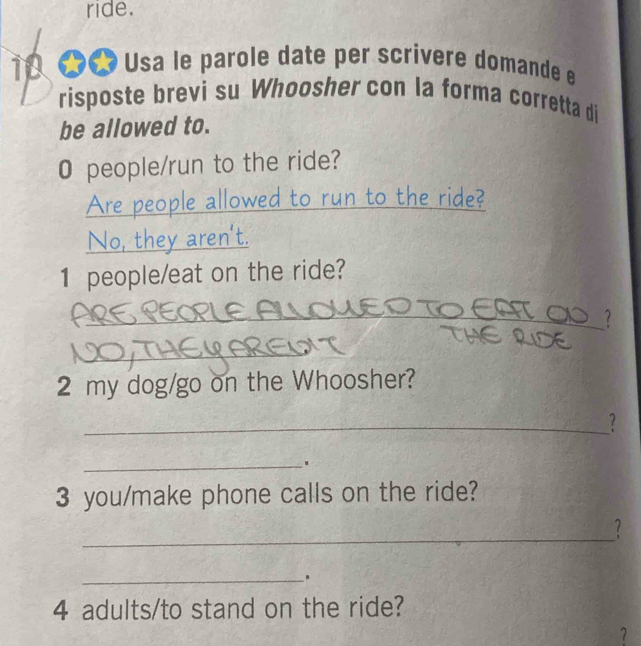 ride.
10 Usa le parole date per scrivere domande e
risposte brevi su Whoosher con la forma corretta di
be allowed to.
0 people/run to the ride?
Are people allowed to run to the ride?
No, they aren't.
1 people/eat on the ride?
ARE PEOPLE ALLOWED TO EAT ON ?
THE RIDE
NO, THEY AREN'T
2 my dog/go on the Whoosher?
?
.
3 you/make phone calls on the ride?
?
.
4 adults/to stand on the ride?
?